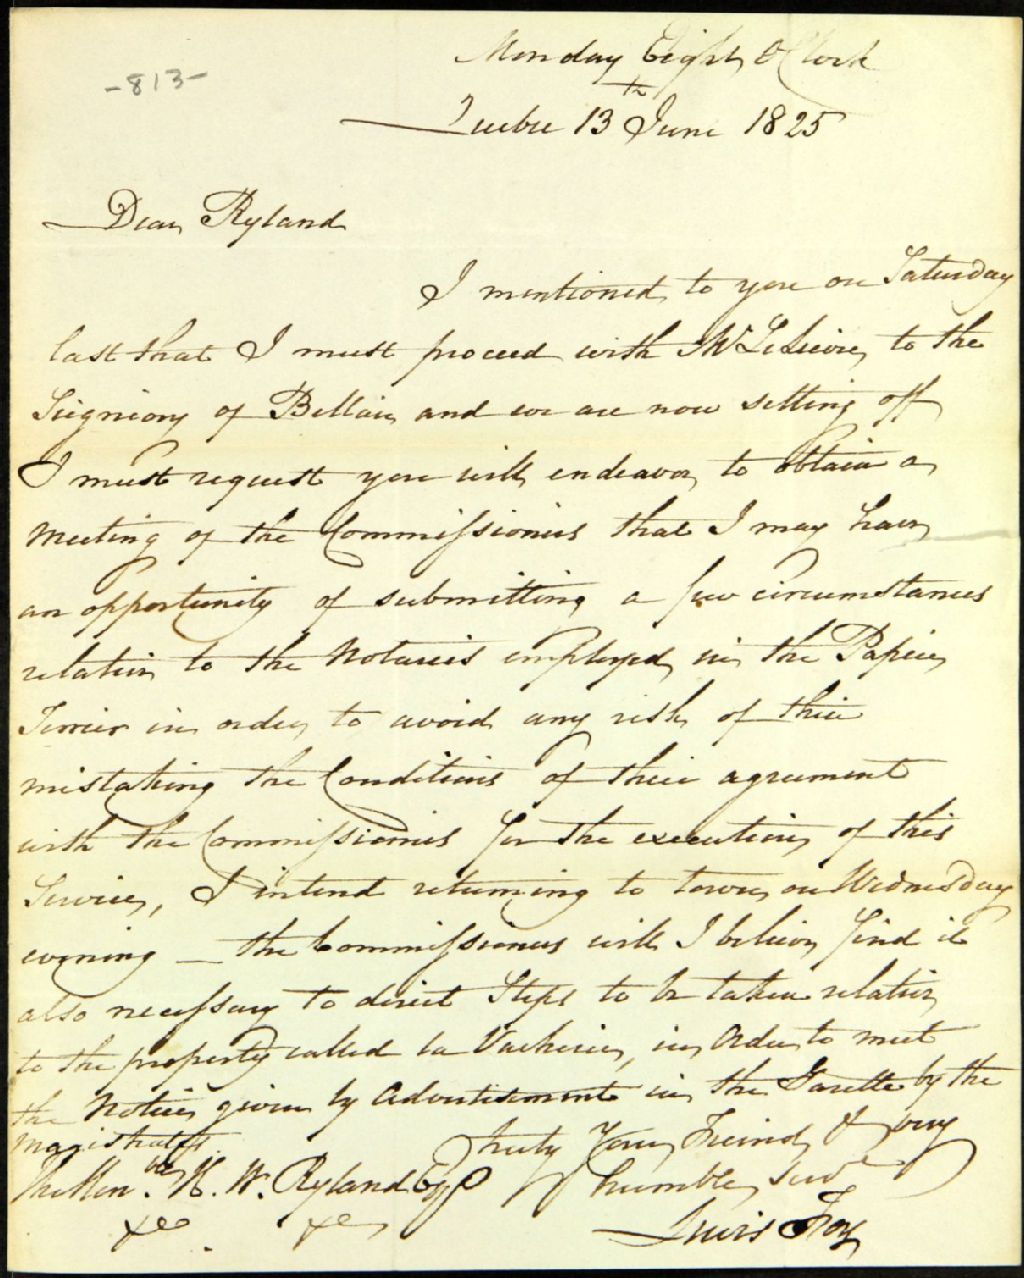 -813-
Monday Eight O'Clock
Quebec 13th June 1825
Dear Ryland
I mentioned to you on Saturday
last that I must proceed with Mr LeLievre to the
Seigniory of Bellair and we are now setting off
I must request you will endeavor to obtain a
Meeting of the Commissioners that I may have
an opportunity of submitting a few circumstances
relative to the Notaries employed in the Papier
Terrier in order to avoid any risk of their
mistaking the Conditions of their agreement
with the Commissioners for the execution of this
Service, I intend returning to town on Wednesday
evening — the Commissioners will I believe find it
also necessary to direct Steps to be taken relative
to the property called La Vacherie, in Order to meet
the Notice given by Advertisement in the Gazette by the
Magistrates
truly Your Freind & very
The Honble. H. W. Ryland Esqr
humble Servt
&c &c
Lewis Foy